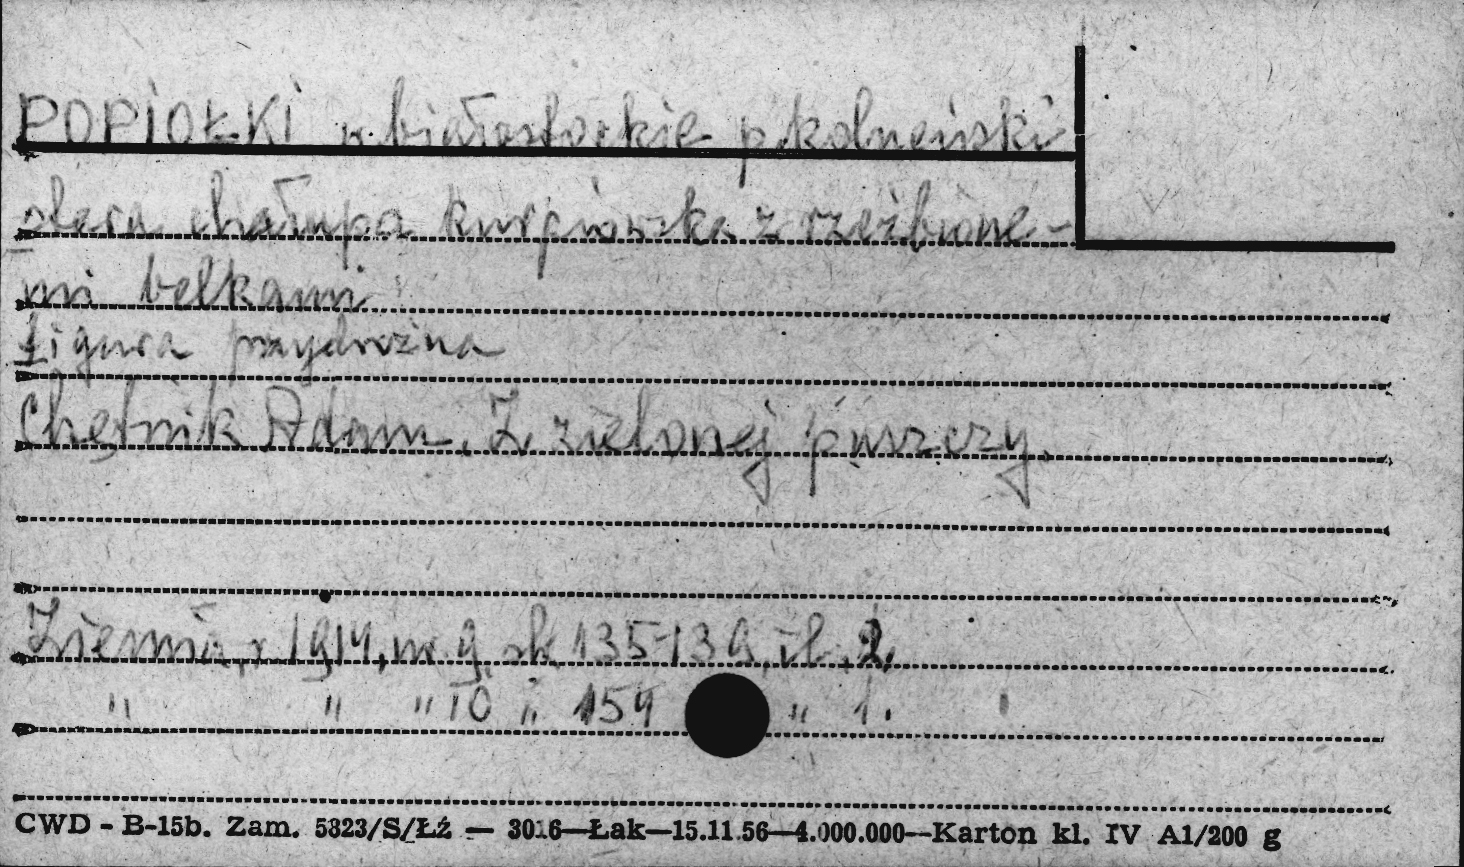 POPIOŁKI w. białostockie p. kolneński
stara chałupa kurpiowska z rzeźbione-
mi belkami
figura przydrożna
Chętnik Adam, Z zielonej puszczy.
Ziemia, r. 1914, nr 9, str. 135-139, il. 2,
" " " 10 " 154 " 1.
CWD - B-15b. Zam. 5323/S/Łź — 3016—Łak—15.11.56—4.000.000—Karton kl. IV A1/200 g